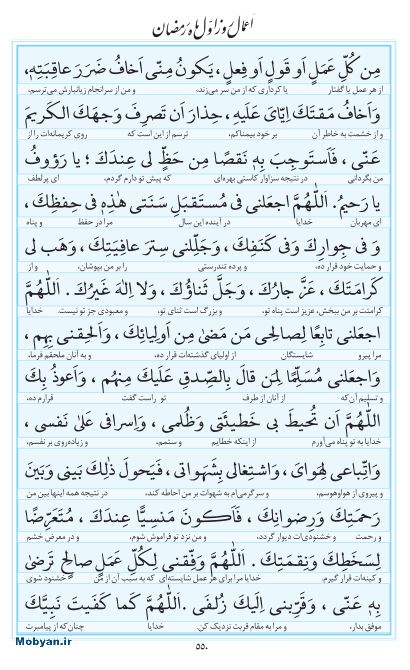 اعمال روز اول ماه رمضان
مِن كُلِّ عَمَلٍ اَو قَولٍ اَو فِعلٍ، يَكُونُ مِنّى اَخافُ ضَرَرَ عاقِبَتِهِ،
از هر عمل یا گفتار یا کرداری که از من سر می‌زند، و من از سرانجام زیانبارش می‌ترسم،
وَاَخافُ مَقتَكَ اِيّاىَ عَلَيهِ، حِذارَ اَن تَصرِفَ وَجهَكَ الكَريمَ
و از خشمت به خاطر آن بر خود بیمناکم، ترسم از این است که روی کریمانه‌ات را از
عَنّى، فَاَستَوجِبَ بِهِ نَقصًا مِن حَظٍّ لى عِندَكَ؛ يا رَؤُوفُ
من بگردانی در نتیجه سزاوار کاستی بهره‌ای که پیش تو دارم گردم، ای پرلطف
يا رَحيمُ. اَللّٰهُمَّ اجعَلنى فى مُستَقبَلِ سَنَتى هٰذِهِ فى حِفظِكَ،
ای مهربان خدایا در آینده این سال مرا در حفظ و پناه
وَ فى جِوارِكَ وَفى كَنَفِكَ، وَجَلِّلنى سِترَ عافِيَتِكَ، وَهَب لى
و حمایت خود قرار ده، و پرده تندرستی را بر من بپوشان، و از
كَرامَتَكَ، عَزَّ جارُكَ، وَجَلَّ ثَناؤُكَ، وَلا اِلهَ غَيرُكَ. اَللّٰهُمَّ
کرامتت بر من ببخش، عزیز است پناه تو، و بزرگ است ثنای تو، و معبودی جز تو نیست. خدایا
اجعَلنى تابِعًا لِصالِحى مَن مَضىٰ مِن اَولِيائِكَ، وَاَلحِقنى بِهِم،
مرا پیرو شایستگان از اولیای گذشته‌ات قرار ده، و به آنان ملحقم فرما،
وَاجعَلنى مُسَلِّمًا لِمَن قالَ بِالصِّدقِ عَلَيكَ مِنهُم، وَاَعوذُ بِكَ
و تسلیم آن‌که از آنان از طرف تو راست گفت قرارم ده،
اللّٰهُمَّ اَن تُحيطَ بى خَطيئَتى وَظُلمى، وَاِسرافى عَلىٰ نَفسى،
خدایا به تو پناه می‌آورم از اینکه خطایم و ستمم، و زیاده‌روی بر نفسم،
وَاتِّباعى لِهَواىَ، وَاشتِغالى بِشَهَواتى، فَيَحولَ ذٰلِكَ بَينى وَبَينَ
و پیروی از هواوهوسم، و سرگرمی‌ام به شهوات بر من احاطه کند، در نتیجه همه اینها بین من
رَحمَتِكَ وَرِضوانِكَ، فَاَكونَ مَنسِيًّا عِندَكَ، مُتَعَرِّضًا
و رحمت و خشنودی‌ات دیوار گردد، و من نزد تو فراموش شوم، و در معرض خشم
لِسَخَطِكَ وَنِقمَتِكَ. اَللّٰهُمَّ وَفِّقنى لِكُلِّ عَمَلٍ صالِحٍ تَرضىٰ
و کینه‌ات قرار گیرم. خدایا مرا برای هر عمل شایسته‌ای که به سبب آن از من خشنود شوی
بِهِ عَنّى، وَقَرِّبنى اِلَيكَ زُلفى. اَللّٰهُمَّ كَما كَفَيتَ نَبِيَّكَ
موفق بدار، و مرا به مقام قربت نزدیک کن. خدایا چنان‌که از پیامبرت
Mobyan.ir
۵۵۰